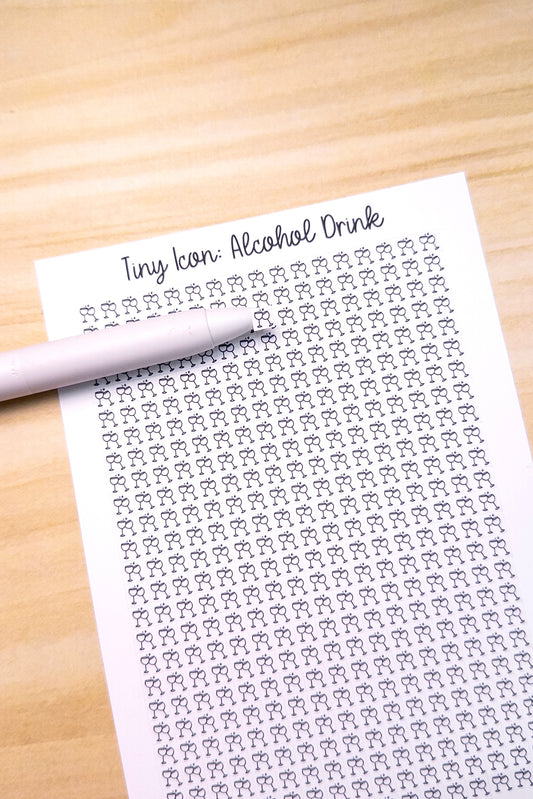 Tiny Icon: Alcohol Drink